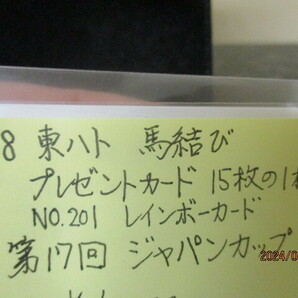 8 東ハト 馬結び
プレゼントカード 15枚の1枚
NO.201 レインボーカード
第17回 ジャパンカップ
2024/0